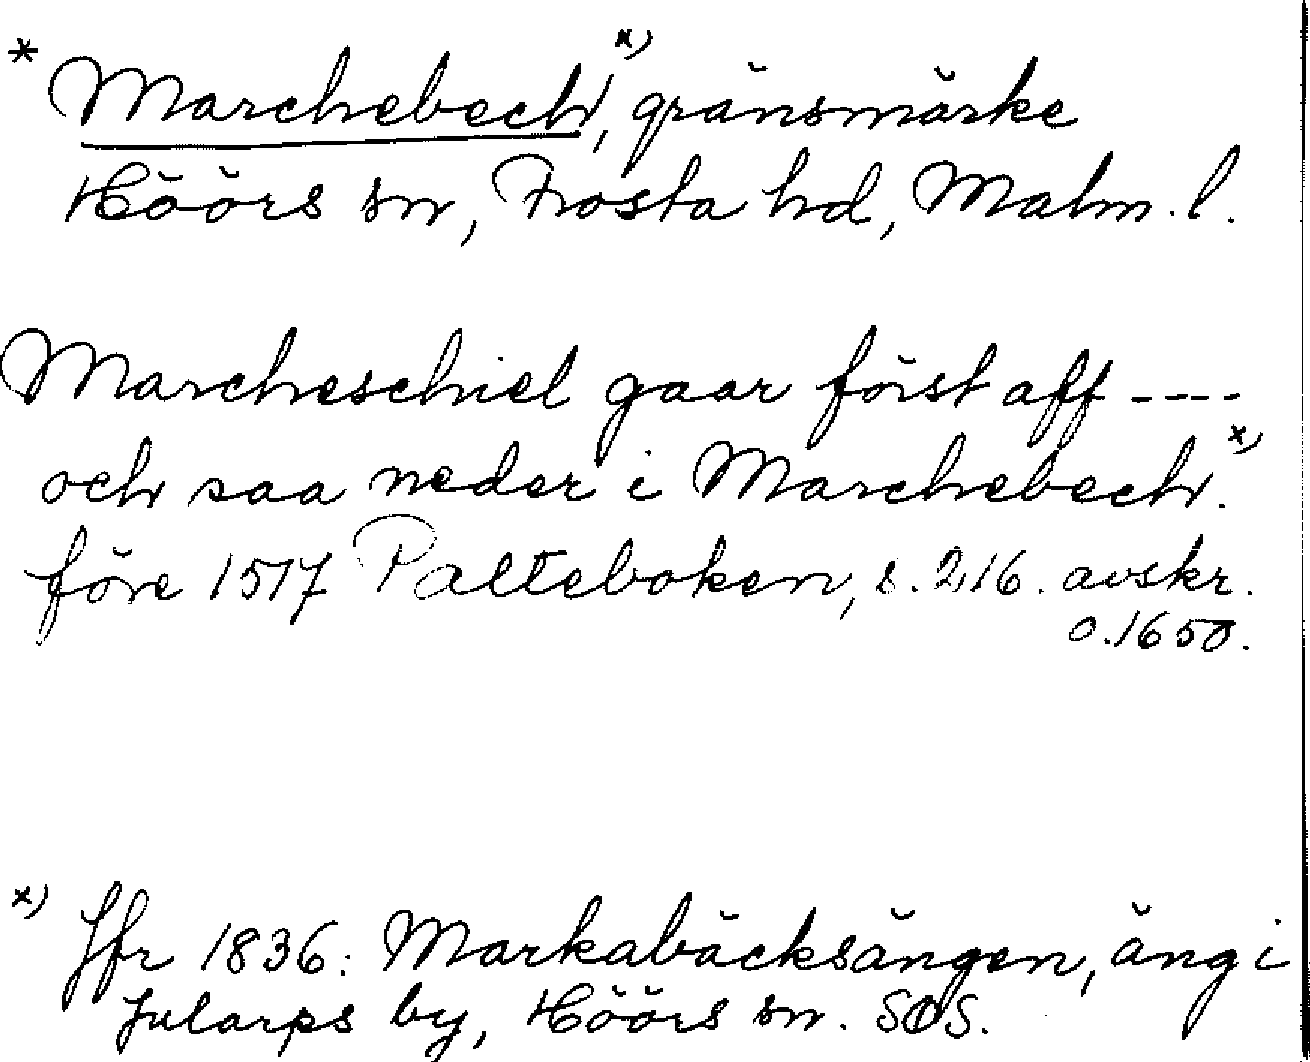 * Marchebech, x) gränsmärke
Höörs sn, Frosta hd, Malm. l.
Marcheschiel gaar först aff ----
och saa neder i Marchebech. x)
före 1517 Palteboken, s. 216. avskr.
o. 1650.
x) Jfr 1836: Markabäcksängen, äng i
Jularps by, Höörs sn. SOS.